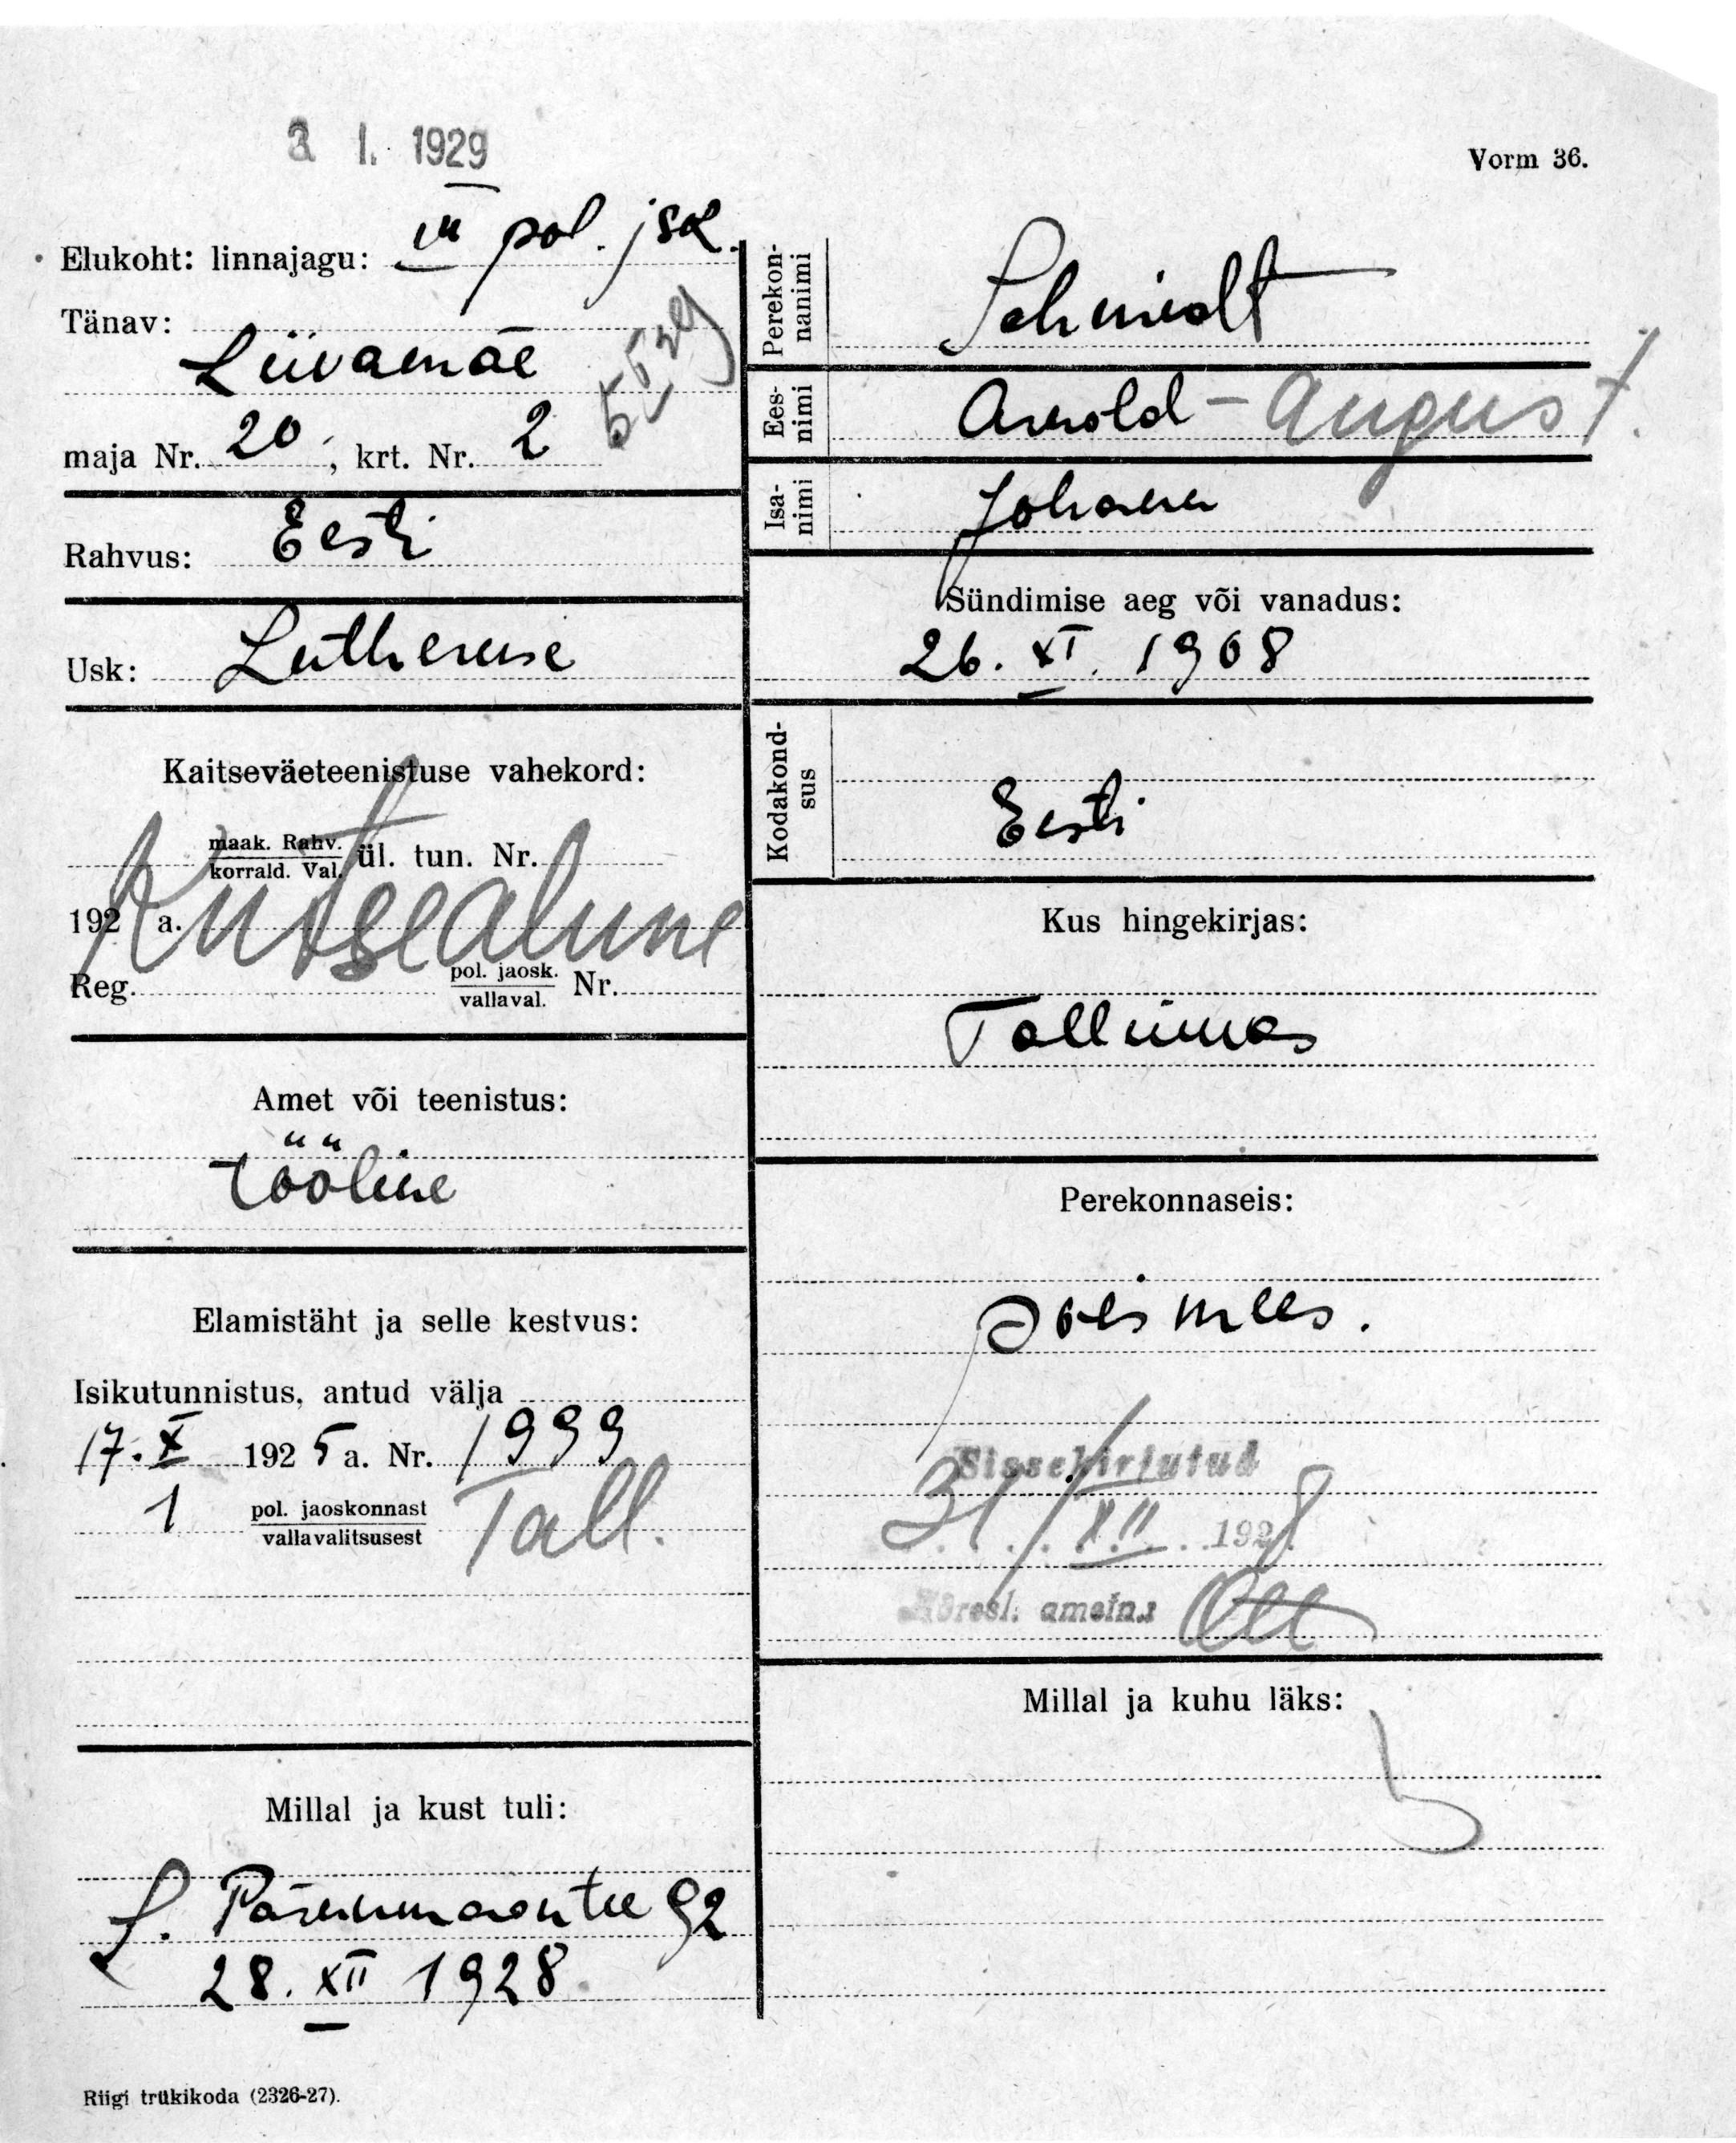 3 I. 1929
Vorm 36.
Elukoht: linnajagu: III pol. jsk.
Tänav:
Liivamäe
maja Nr. 20, krt. Nr. 2
Rahvus: Eesti
Usk: Lutheruse
Kaitseväeteenistuse vahekord:
maak. Rahv.
korrald. Val. ül. tun. Nr.
192 a.
Kutsealune
Reg. pol. jaosk. Nr.
vallaval.
Amet või teenistus:
Tööline
Elamistäht ja selle kestvus:
Isikutunnistus, antud välja
17. X 1925 a. Nr. 1999
1 pol. jaoskonnast Tall.
vallavalitsusest
Millal ja kust tuli:
S. Pärnumaantee 92
28. XII 1928
Riigi trükikoda (2326-27).
Perekonnanimi Schmidt
Eesnimi Arnold - August.
Isanimi Johann
Sündimise aeg või vanadus:
26. XI. 1908
Kodakondsus
Eesti
Kus hingekirjas:
Tallinnas
Perekonnaseis:
poismees.
Sissekirjutud
31/XII 1928
Adresl. ametn.:
Millal ja kuhu läks: